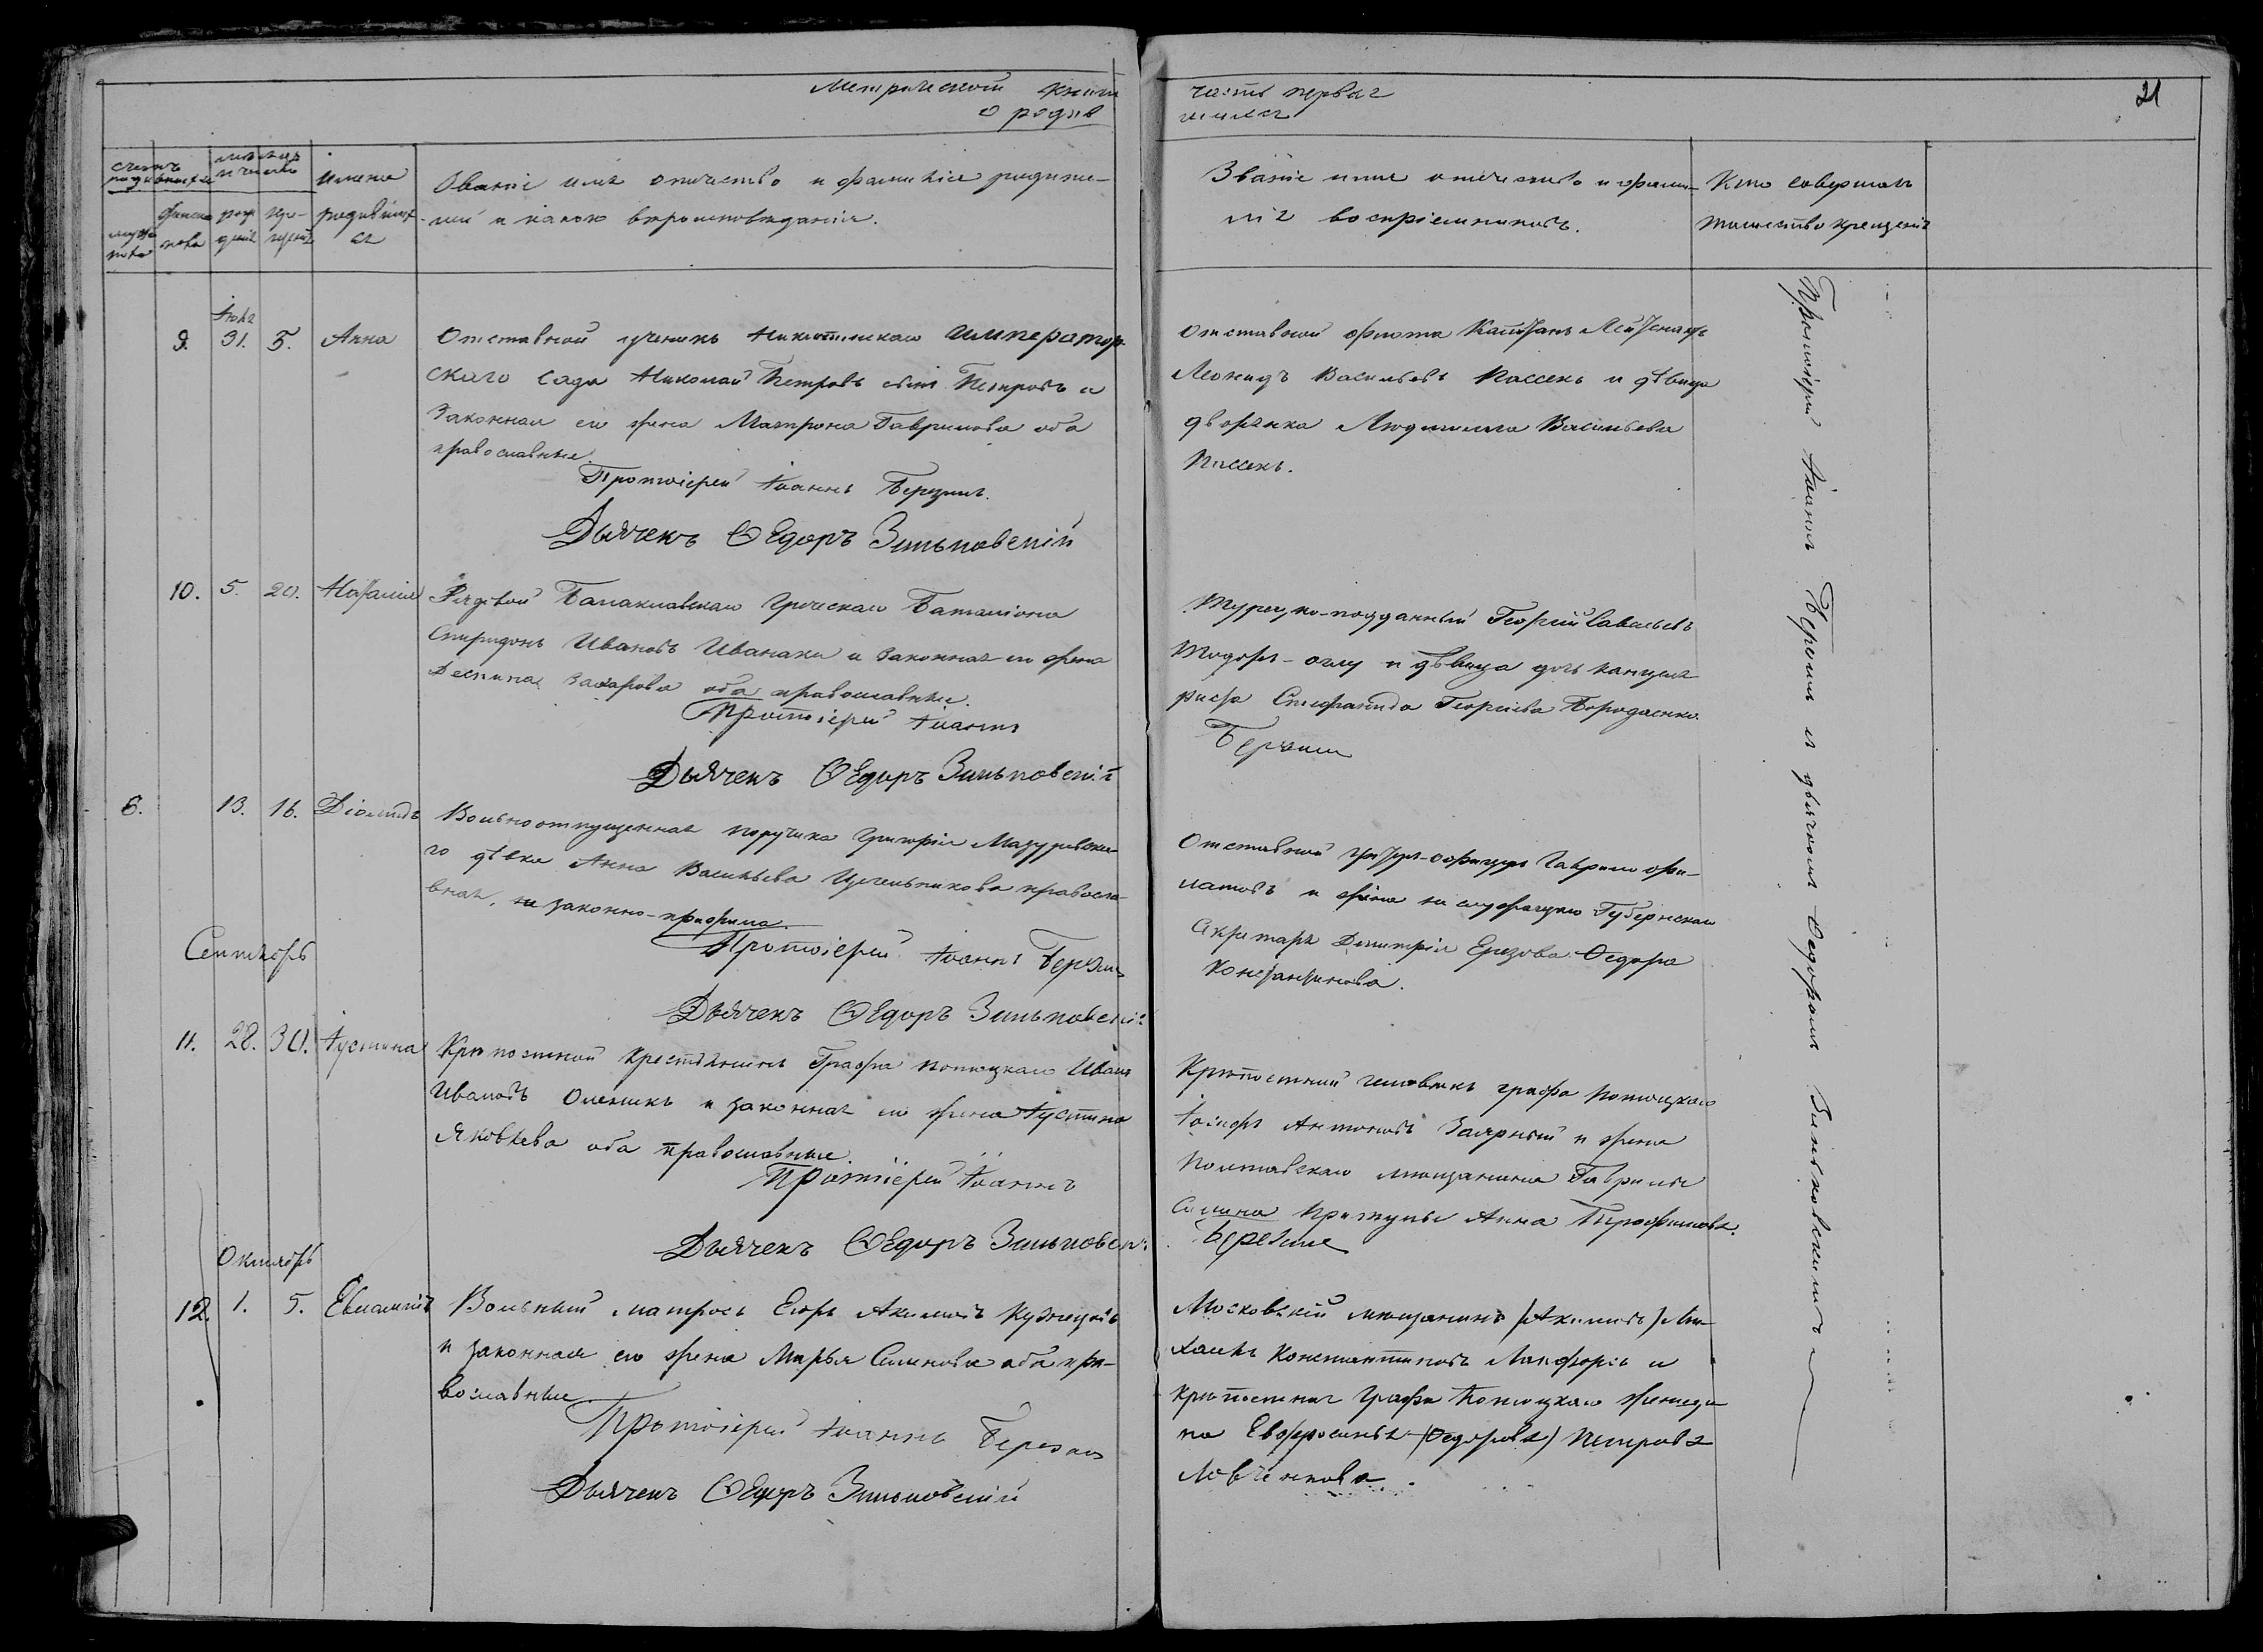 Метрической книги часть первая
о родив шихся
21
Счетъ родившихся
мѣсяцъ и число
Имена родившихся
Званіе имя отчество и фамилія родите-
лей и какого вѣроисповѣданія.
Званіе имя отчество и фами-
лія воспріемниковъ.
Кто совершалъ
таинство крещенія
мужеска пола
женска пола
рождені
крещені
Іюля
9. 31. 5. Анна
Отставной ученикъ Никитскаго Император-
скаго сада Николай Петровъ сынъ Петровъ и
Законная его жена Матрона Гаврилова оба
православные.
Протоіерей Іоаннъ Березинъ.
Дьячекъ Ѳедоръ Зиньковскій
Отставной флота Капитанъ Лейтенантъ
Леонидъ Васильевъ Пассекъ и дѣвица
дворянка Людмила Васильева
Пассекъ.
10. 5. 20. Наталія
Рядовой Балаклавскаго Греческаго Баталіона
Спиридонъ Ивановъ Иванаки и законная его жена
Деспина Захарова оба православные.
Протоіерей Іоаннъ
Дьячекъ Ѳедоръ Зиньковскій
Турецко-подданный Георгій Савельевъ
Тодоръ-оглу и дѣвица дочь канцеля
риста Стефанида Георгіева Бородаенко
Березинъ
6. 13. 16. Діомидъ
Вольноотпущенная поручика Григорія Мазуревска-
го дѣвка Анна Васильева Щегельникова правосла-
вная, не законно-прижила.
Протоіерей Іоаннъ Березинъ
Дьячекъ Ѳедоръ Зиньковскій
Отставной унтеръ-офицеръ Гаврило Фи-
латовъ и жена не служащаго Губернскаго
Секретаря Димитрія Ерезова Ѳедора
Константинова.
Сентябрь
11. 28. 30. Іустина
Крѣпостной крестьянинъ Графа Потоцкаго Иванъ
Ивановъ Олейникъ и законная его жена Іустина
Яковлева оба православные.
Протоіерей Іоаннъ
Дьячекъ Ѳедоръ Зиньковскі
Крѣпостный человѣкъ графа Потоцкаго
Іосифъ Антоновъ Заярный и жена
Полтавскаго мѣщанина Гаврилы
Савина Притулы Анна Трофимова.
Березинъ
Октябрь
12. 1. 5. Евлампія
Вольный матросъ Егоръ Акимовъ Кузнецовъ
и законная его жена Марья Семенова оба пра-
вославные
Протоіерей Іоаннъ Березинъ
Дьячекъ Ѳедоръ Зиньковскій
Московскій мѣщанинъ (Акимовъ) Ми-
хаилъ Константиновъ Ланфоръ и
крѣпостная Графа Потоцкаго женщи-
на Евфросинья (Ѳедорова) Петрова
Левченкова.
Протоіерей Іоаннъ Березинъ и дьячкомъ Ѳедоромъ Зиньковскимъ